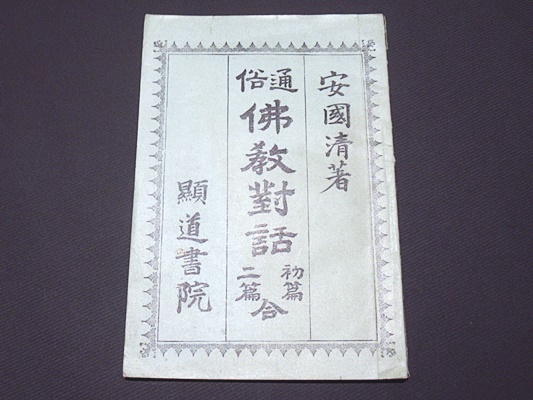 安國清著
通俗
佛教對話
初篇
二篇
合
顯道書院